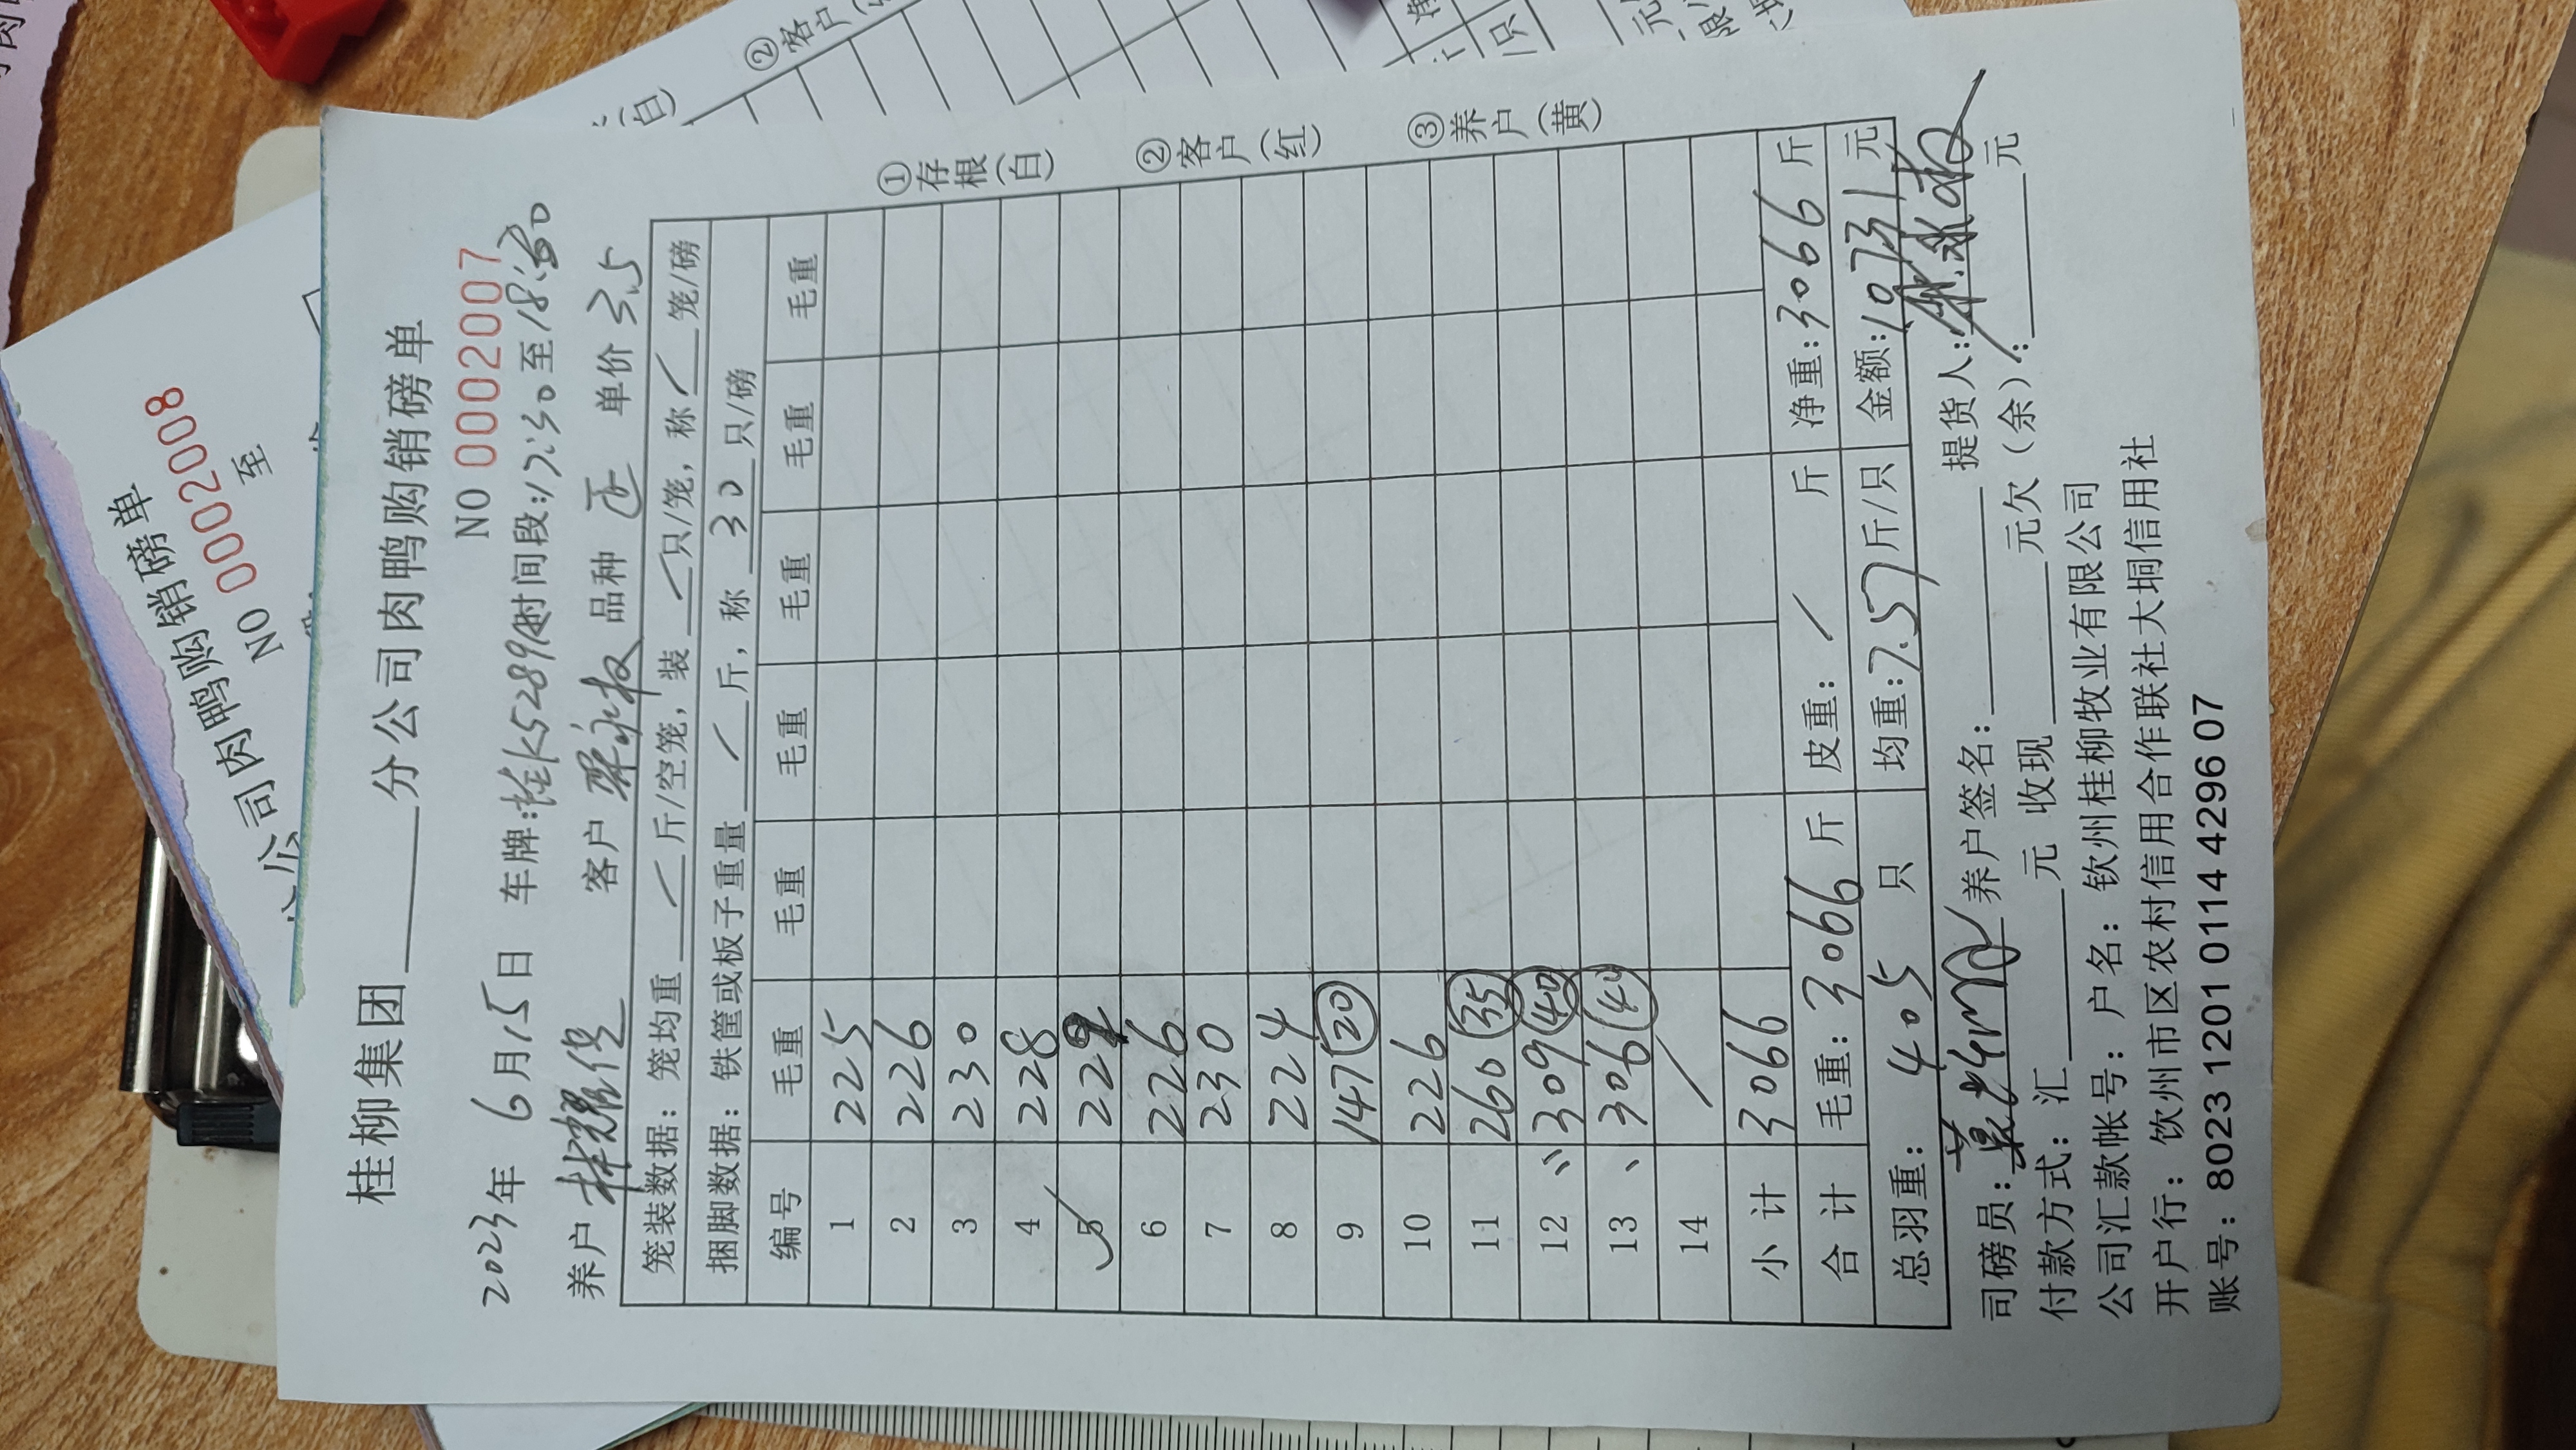 桂柳集团 分公司肉鸭购销磅单
NO 0002007
2023年 6月15日 车牌:桂K5289 时间段:17:30至18:30
养户 林耀俊 客户 永权 品种 正 单价 3.5
笼装数据: 笼均重 / 斤/空笼, 装 / 只/笼, 称 / 笼/磅
捆脚数据: 铁筐或板子重量 / 斤, 称 30 只/磅
编号 毛重 毛重 毛重 毛重 毛重 毛重
1 225
2 226
3 230
4 228
5 229
6 226
7 230
8 224
9 147 (20)
10 226
11 260 (35)
12 309 (40)
13 306 (40)
14 /
小计 3066
合计 毛重: 3066 斤 皮重: / 斤 净重: 3066 斤
总羽重: 405 只 均重: 7.57 斤/只 金额: 10731 元
司磅员: 养户签名: 提货人:
付款方式: 汇 元 收现 元欠(余): 元
公司汇款帐号: 户名: 钦州桂柳牧业有限公司
开户行: 钦州市区农村信用合作联社大垌信用社
账号: 8023 1201 0114 4296 07
①存根(白)
②客户(红)
③养户(黄)
公司肉鸭购销磅单
NO 0002008
至
②客户
(白)